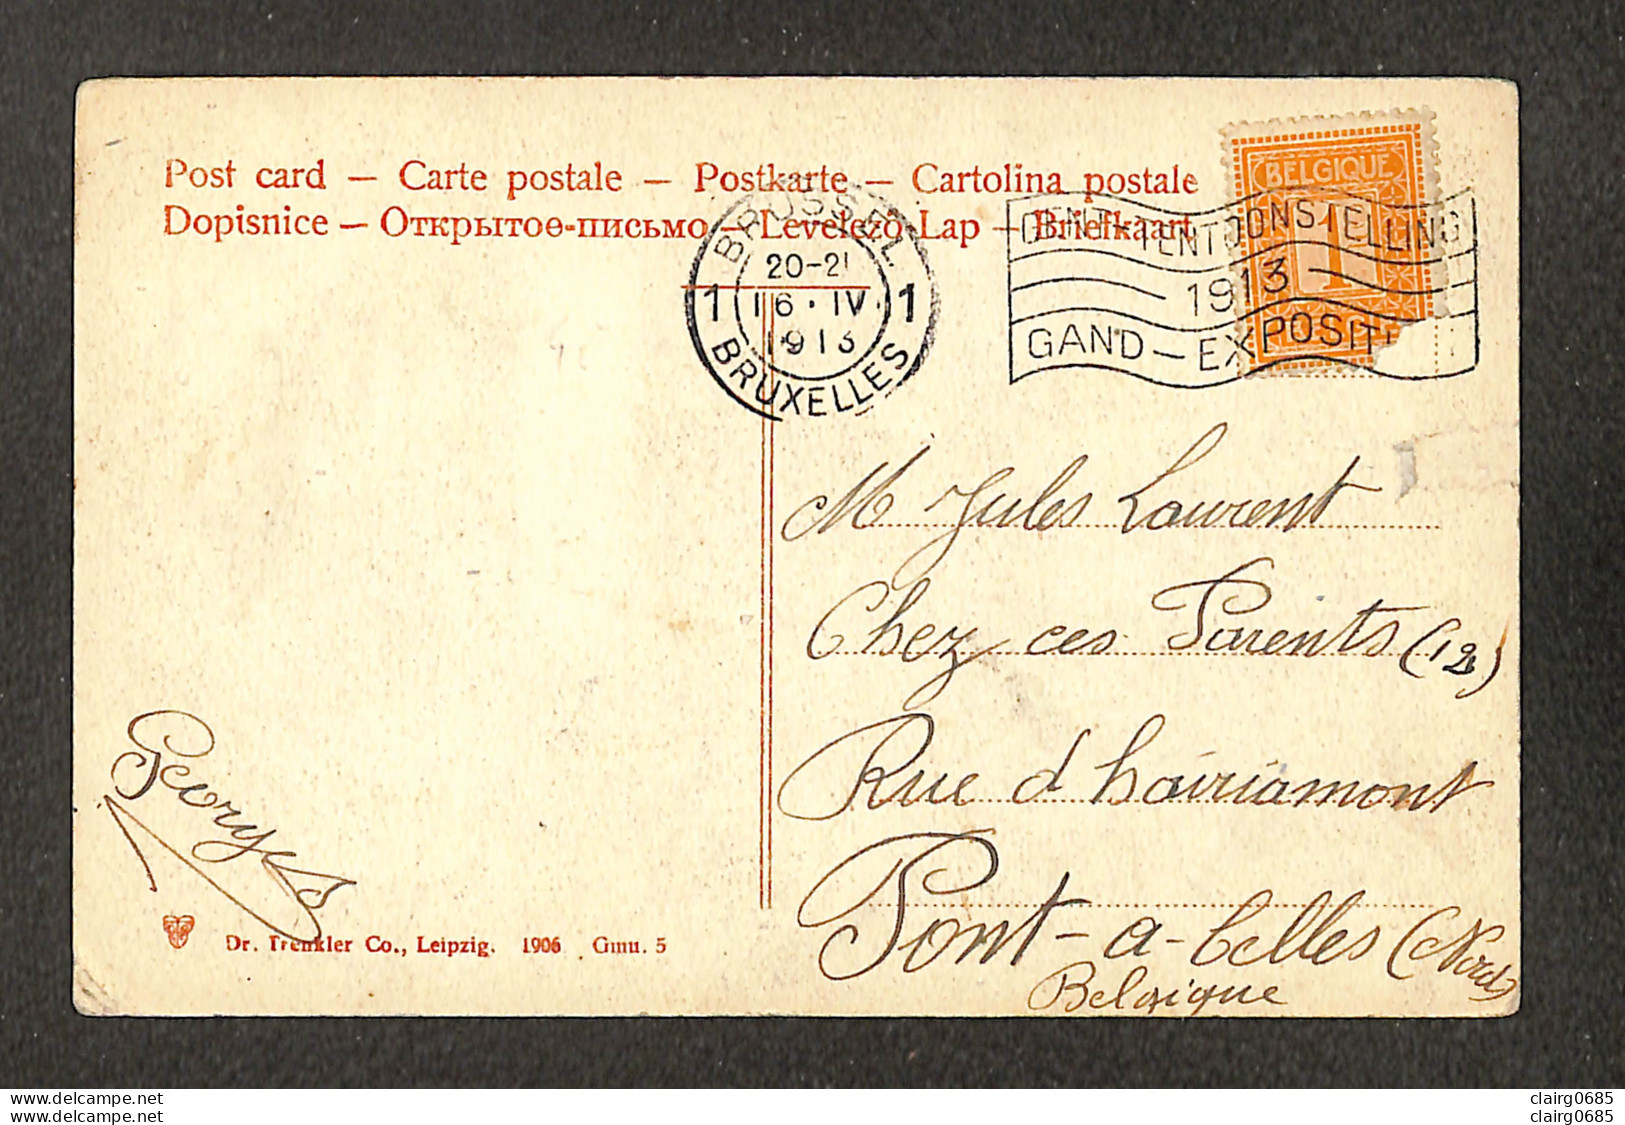 Post card – Carte postale – Postkarte – Cartolina postale
Dopisnice – Открытое-письмо – Levelező-Lap – Briefkaart
BELGIQUE
1
BRUSSEL
20-21
1 16·IV· 1
1913
BRUXELLES
GENT-TENTOONSTELLING
1913
GAND-EXPOSIT
M Jules Laurent
Chez ces Parents (12)
Rue d hairiamont
Pont-a-Celles (Nord)
Belgique
Georges
Dr. Trenkler Co., Leipzig. 1906 Gmu. 5
www.delcampe.net
www.delcampe.net
clairg0685
clairg0685